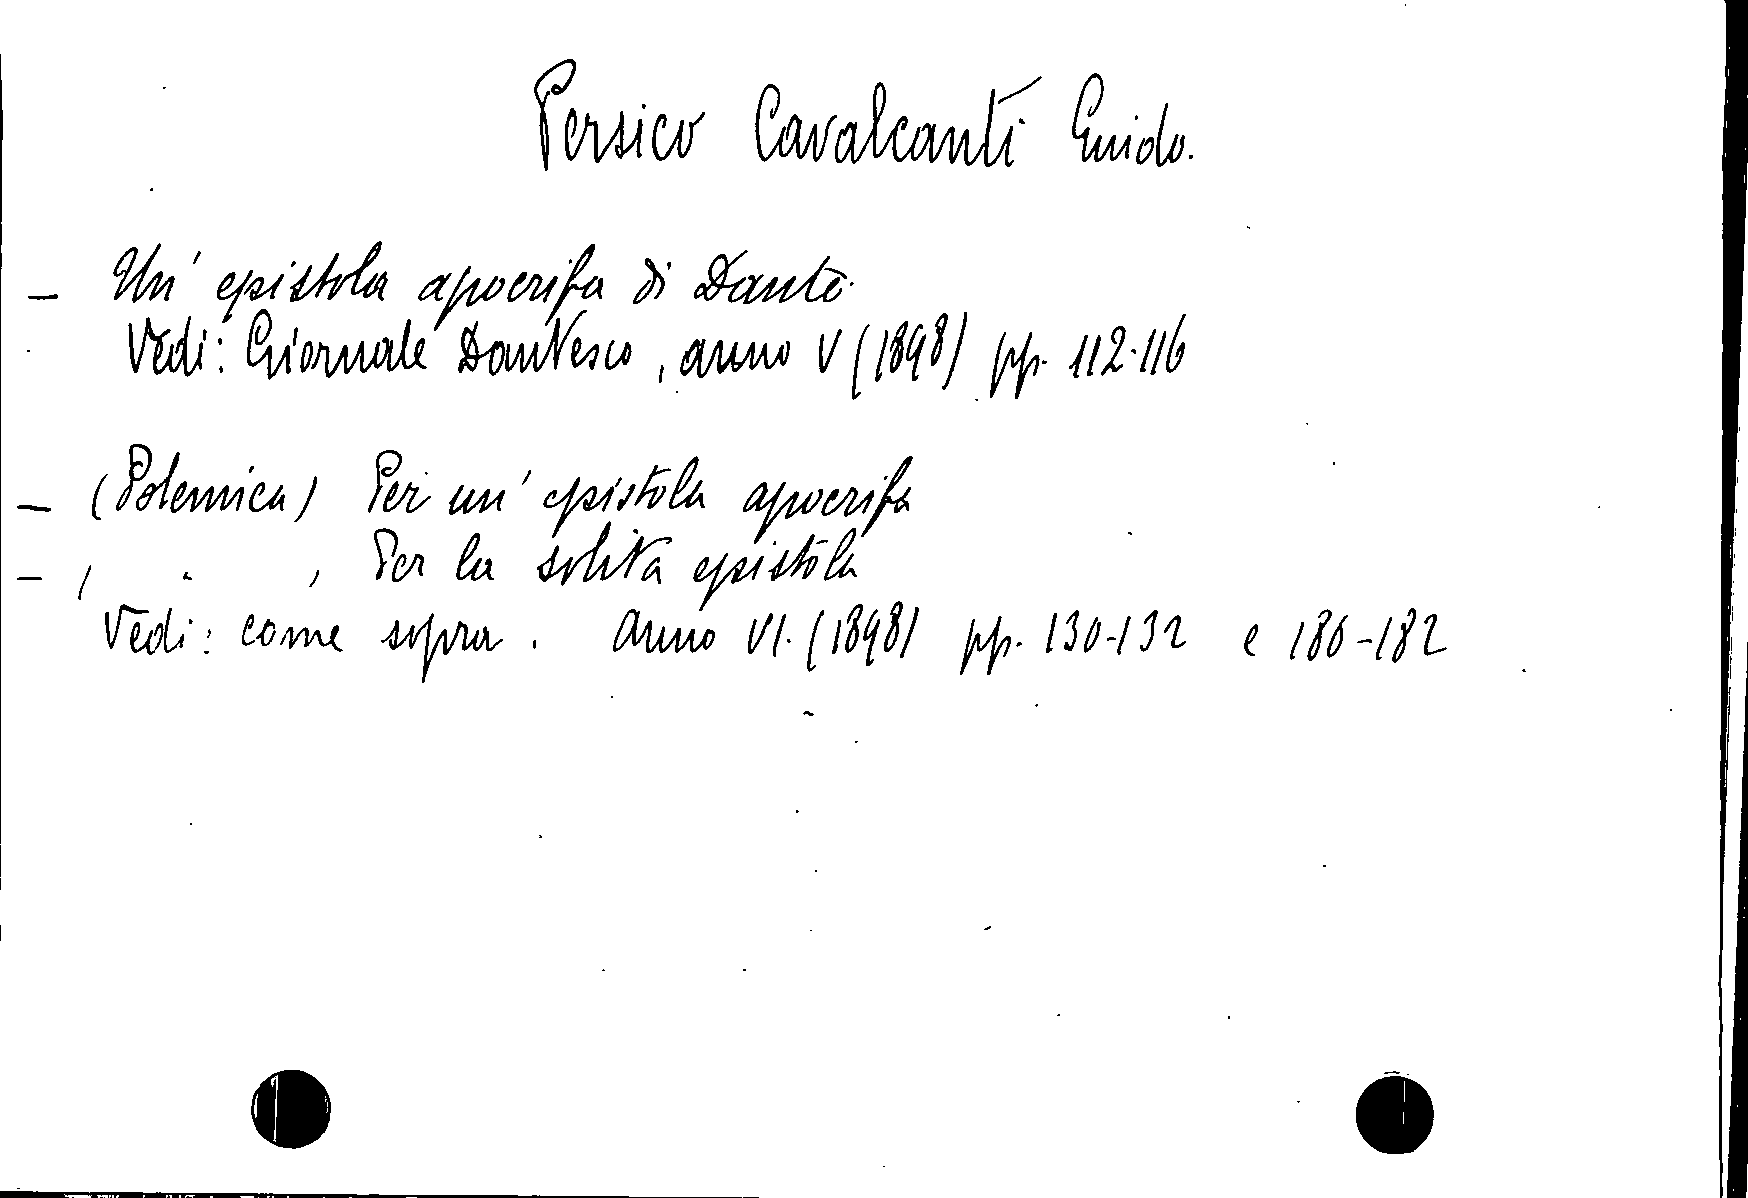 Persico Cavalcanti Guido.
— Un' epistola apocrifa di Dante.
Vedi: Giornale Dantesco, anno V (1898) pp. 112-116
— (Polemica) Per un' epistola apocrifa
— , " , Per la solita epistola
Vedi: come sopra. Anno VI. (1898) pp. 130-132 e 180-182